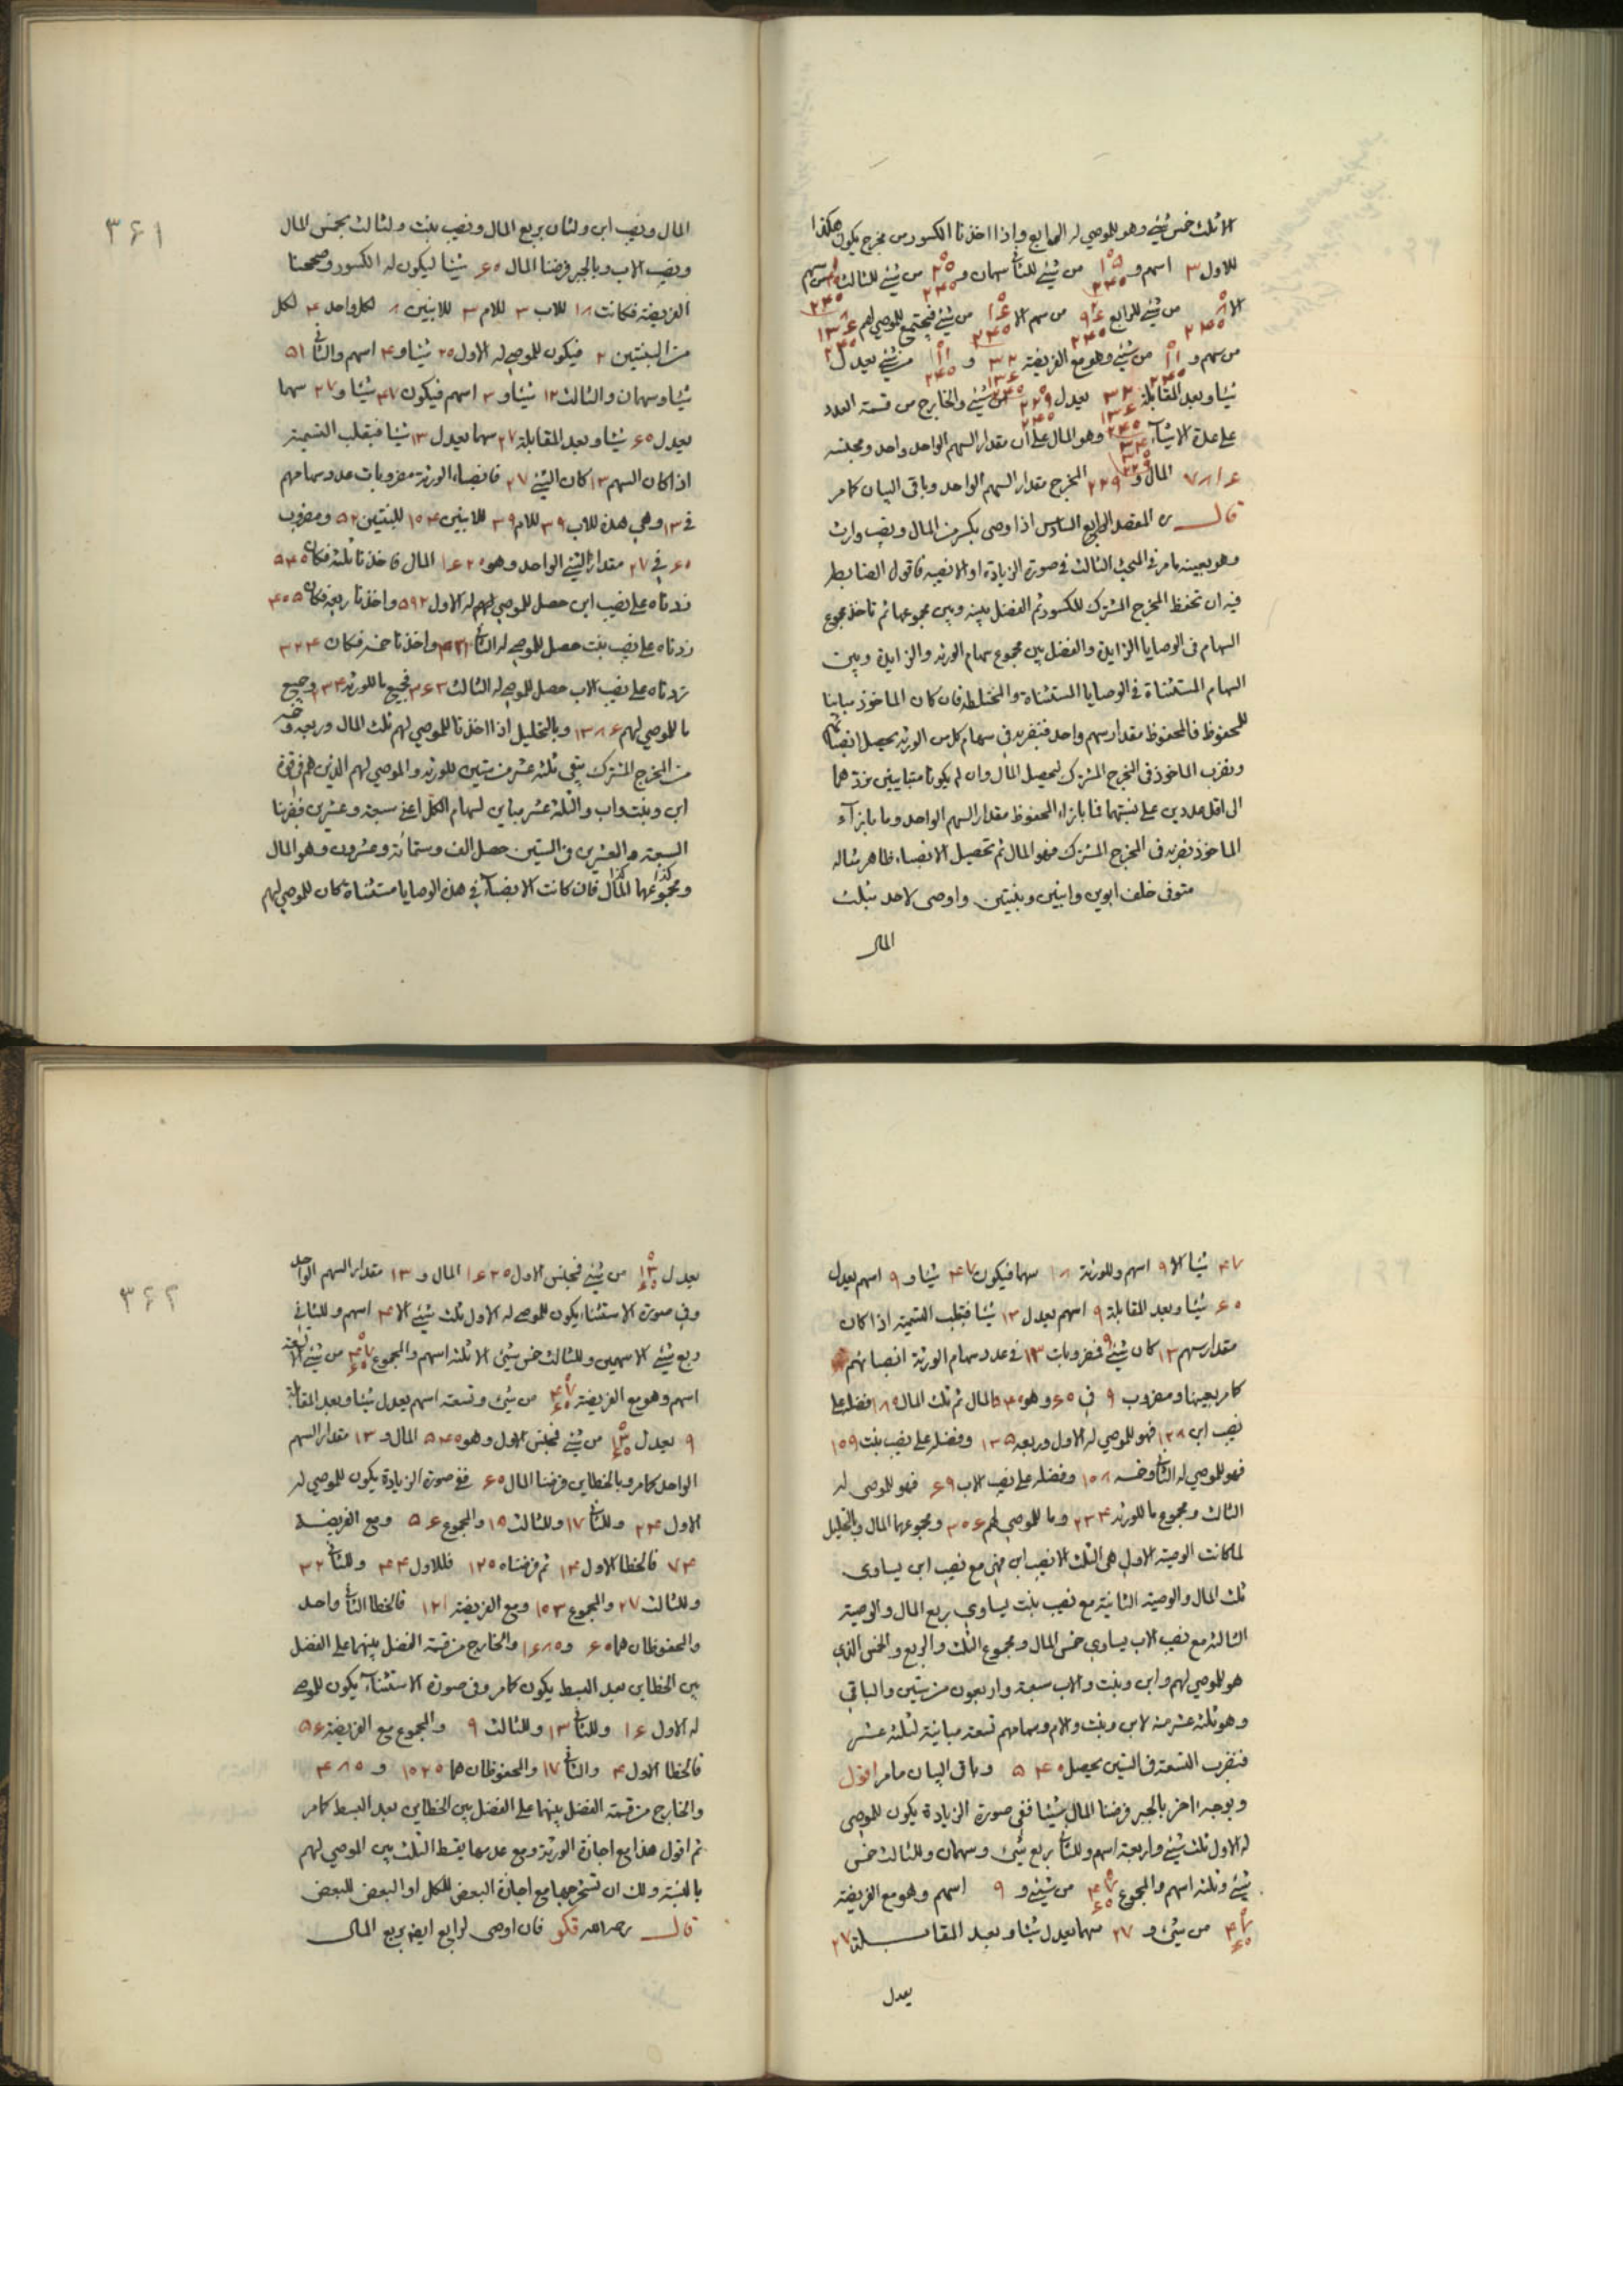 الا ثلث خمس شيئ وهو للموصي له الرابع واذا اخذنا الكسور من مخرج يكون هكذا
للاول ٣ اسهم و من شيئ للثاني سهمان و من شيئ للثالث سهم
الا من شيئ للرابع من سهم الا من شيئ فيجتمع للموصي لهم
من سهم و من شيئ وهو مع الفريضة ٣٢ و من شيئ يعدل
شيئا وبعد المقابلة ٣٢ يعدل من شيئ والخارج من قسمة العدد
على عدة الاشياء وهو المال على ان مقدار السهم الواحد واحد ومجنسه
٧٨١٦ المال و ٢٢٩ المخرج مقدار السهم الواحد وباقي البيان كما مر
قال المقصد الرابع السادس اذا وصي بكسر من المال ونصيب وارث
وهو بعينه ما مر في المبحث الثالث في صورة الزيادة او الانصبه فاقول الضابط
فيه ان تحفظ المخرج المشترك للكسور ثم الفضل بينه وبين مجموعها ثم تاخذ مجموع
السهام في الوصايا الزايدة والفضل بين مجموع سهام الورثه والزايدة وبين
السهام المستثناة في الوصايا المستثناة والمختلطه فان كان الماخوذ مباينا
للمحفوظ فالمحفوظ مقدار سهم واحد فنضربه في سهام كل من الورثه يحصل انصبائهم
ونضرب الماخوذ في المخرج المشترك ليحصل المال وان لم يكونا متباينين نردهما
الى اقل عددين على نسبتهما فما بازاء المحفوظ مقدار السهم الواحد وما بازآء
الماخوذ نضربه في المخرج المشترك فهو المال ثم تحصيل الانصباء ظاهر مثاله
متوفى خلف ابوين وابنين وبنتين واوصى لاحد بثلث
المال
٣۶١
المال ونصيب ابن ولثان بربع المال ونصيب بنت ولثالث بخمس المال
ونصيب الاب وبالجبر فرضنا المال ۶٠ شيئا ليكون له الكسور وصححنا
الفريضة فكانت ١٨ للاب ٣ للام ٣ للابنين ٨ لكل واحد ۴ لكل
من البنتين ٢ فيكون للموصي له الاول ٢٠ شيئا و ۴ اسهم والثاني ١۵
شيئا وسهمان والثالث ١٢ شيئا و ٣ اسهم فيكون ۴٧ شيئا و ٢٧ سهما
يعدل ۶٠ شيئا وبعد المقابلة ٢٧ سهما يعدل ١٣ شيئا فبقلب التسمية
اذا كان السهم ١٣ كان الشيئ ٢٧ فانصباء الورثة مضروبات عدد سهامهم
في ١٣ وهي هذه للاب ٣٩ للام ٣٩ للابنين ١٠۴ للبنتين ۵٢ ومضروب
۶٠ في ٢٧ مقدار الشيئ الواحد وهو ١۶٢٠ المال فاخذنا ثلثه فكان ۵۴٠
زدناه على نصيب ابن حصل للموصي لهم له الاول ۵٩٢ واخذنا ربعه فكان ۴٠۵
زدناه على نصيب بنت حصل للموصي له الثاني ۴٣١ واخذنا خمسه فكان ٣٢۴
زدناه على نصيب الاب حصل للموصي له الثالث ٣۶٣ فجميع ما للورثه ٢٣۴ وجميع
ما للموصي لهم ١٣٨۶ وبالتحليل اذا اخذنا للموصي لهم ثلث المال وربعه وخمسه
من المخرج المشترك يبقي ثلثة عشر من ستين للورثه والموصي لهم الذين هم في قوة
ابن وبنت واب والثلثة عشر مباين لسهام الكل اعني سبعة وعشرين فضربنا
السبعة والعشرين في الستين حصل الف وستمائة وعشرون وهو المال
ومجموعهما كذا المال كذا فان كانت الانصباء في هذه الوصايا مستثناة كان للموصي لهم
۴٧ شيئا الا ٩ اسهم وللورثة ١٨ سهما فيكون ۴٧ شيئا و ٩ اسهم يعدل
۶٠ شيئا وبعد المقابلة ٩ اسهم يعدل ١٣ شيئا فبقلب التسمية اذا كان
مقدار سهم ١٣ كان شيئ ٩ فمضروبات ١٣ في عدد سهام الورثة انصبائهم
كما مر بعينها ومضروب ٩ في ۶٠ وهو ۵۴٠ المال ثم ثلث المال ١٨٠ فضله على
نصيب ابن ١٢٨ فهو للموصي له الاول وربعه ١٣۵ وفضله على نصيب بنت ١٠٩
فهو للموصي له الثاني وخمسه ١٠٨ وفضله على نصيب الاب ۶٩ فهو للموصي له
الثالث ومجموع ما للورثه ٢٣۴ وما للموصي لهم ٣٠۶ ومجموعهما المال وبالتحليل
لما كانت الوصية الاولى هي الثلث الا نصيب ابن فهي مع نصيب ابن يساوي
ثلث المال والوصية الثانية مع نصيب بنت يساوي ربع المال والوصية
الثالثه مع نصيب الاب يساوي خمس المال ومجموع الثلث والربع والخمس الذي
هو للموصي لهم وابن وبنت والاب سبعة واربعون من ستين والباقي
وهو ثلثه عشر منه لابن وبنت والام وسهامهم تسعة مباينة لثلثه عشر
فنضرب التسعة في الستين يحصل ۵۴٠ وباقي البيان ما مر اقول
وبوجه اخر بالجبر فرضنا المال شيئا ففي صورة الزيادة يكون للموصي
له الاول ثلث شيئ واربعة اسهم وللثاني ربع شيئ وسهمان وللثالث خمس
شيئ وثلثه اسهم والمجموع من شيئ و ٩ اسهم وهو مع الفريضة
من شيئ و ٢٧ سهما يعدل شيئا وبعد المقابلة ٢٧
يعدل
٣۶٢
يعدل من شيئ فمجنس الاول ١۶٢٠ المال و ١٣ مقدار السهم الواحد
وفي صورة الاستثناء يكون للموصي له الاول ثلث شيئ الا ۴ اسهم وللثاني
ربع شيئ الا سهمين وللثالث خمس شيئ الا ثلثه اسهم والمجموع من شيئ الا تسعة
اسهم وهو مع الفريضة من شيئ وتسعة اسهم يعدل شيئا وبعد المقابلة
٩ يعدل من شيئ فمجنس الاول وهو ۵۴٠ المال و ١٣ مقدار السهم
الواحد كما مر وبالخطاين فرضنا المال ۶٠ ففي صورة الزيادة يكون للموصي له
الاول ٢۴ وللثاني ١٧ وللثالث ١۵ والمجموع ۵۶ ومع الفريضة
٧۴ فالخطا الاول ١۴ ثم فرضناه ١٢٠ فللاول ۴۴ وللثاني ٣٢
وللثالث ٢٧ والمجموع ١٠٣ ومع الفريضة ١٢١ فالخطا الثاني واحد
والمحفوظان هما ۶٠ و ١۶٨٠ والخارج من قسمة الفضل بينهما على الفضل
بين الخطاين بعد البسط يكون كما مر وفي صورة الاستثناء يكون للموصي
له الاول ١۶ وللثاني ١٣ وللثالث ٩ والمجموع مع الفريضة ۵۶
فالخطا الاول ۴ والثاني ١٧ والمحفوظان هما ١٠٢٠ و ۴٨٠
والخارج من قسمة الفضل بينهما على الفضل بين الخطاين بعد البسط كما مر
ثم اقول هذا مع اجازة الورثة ومع عدمها يقسط الثلث بين الموصي لهم
بالنسبة ولك ان تستخرجها مع اجازة البعض للكل او البعض للبعض
قال رحمه الله فكو فان اوصى لرابع ايضا بربع المال